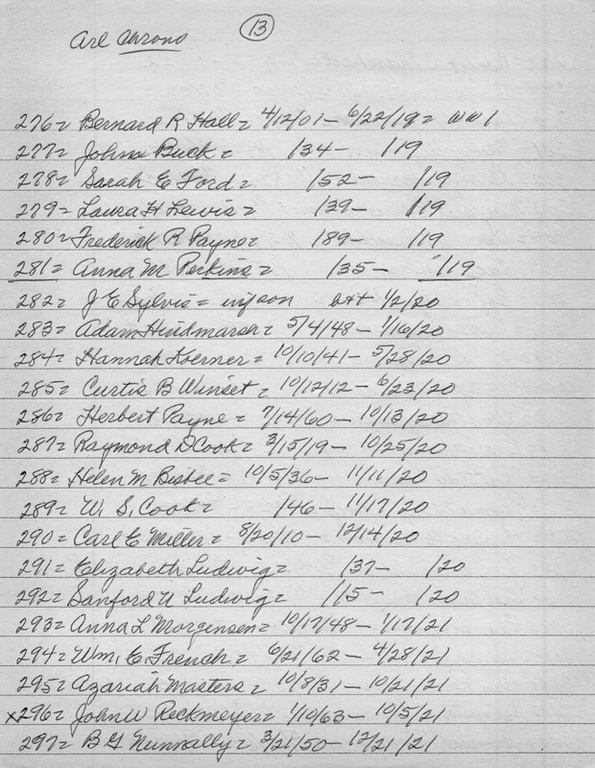 13
Arl Chrono
276= Bernard R Hall= 4/12/01- 6/22/19= WW1
277= Johns Buck= /34- /19
278= Sarah E Ford= /52- /19
279= Laura H Lewis= /39- /19
280= Frederick R Payne= /89- /19
281= Anna M Perkins= /35- /19
282= J E Sylvis= inf son 1/2/20
283= Adam Hindmarsh= 5/4/48- 1/16/20
284= Hannah Koerner= 10/10/41- 5/28/20
285= Curtis B Winset= 10/12/12- 6/23/20
286= Herbert Payne= 7/14/60- 10/13/20
287= Raymond D Cook= 3/15/19- 10/25/20
288= Helen M Bisbee= 10/5/36- 11/11/20
289= W. S. Cook= /46- 11/17/20
290= Carl E Miller= 8/20/10- 12/14/20
291= Elizabeth Ludwig= /37- /20
292= Sanford U Ludwig= /15- /20
293= Anna L Morgensen= 10/17/48- 1/17/21
294= Wm. E. French= 6/21/62- 4/28/21
295= Azariah Masters= 10/8/31- 10/21/21
x296= John W Reckmeyer= 1/10/63- 10/5/21
297= B G Nunnally= 3/21/50- 12/21/21